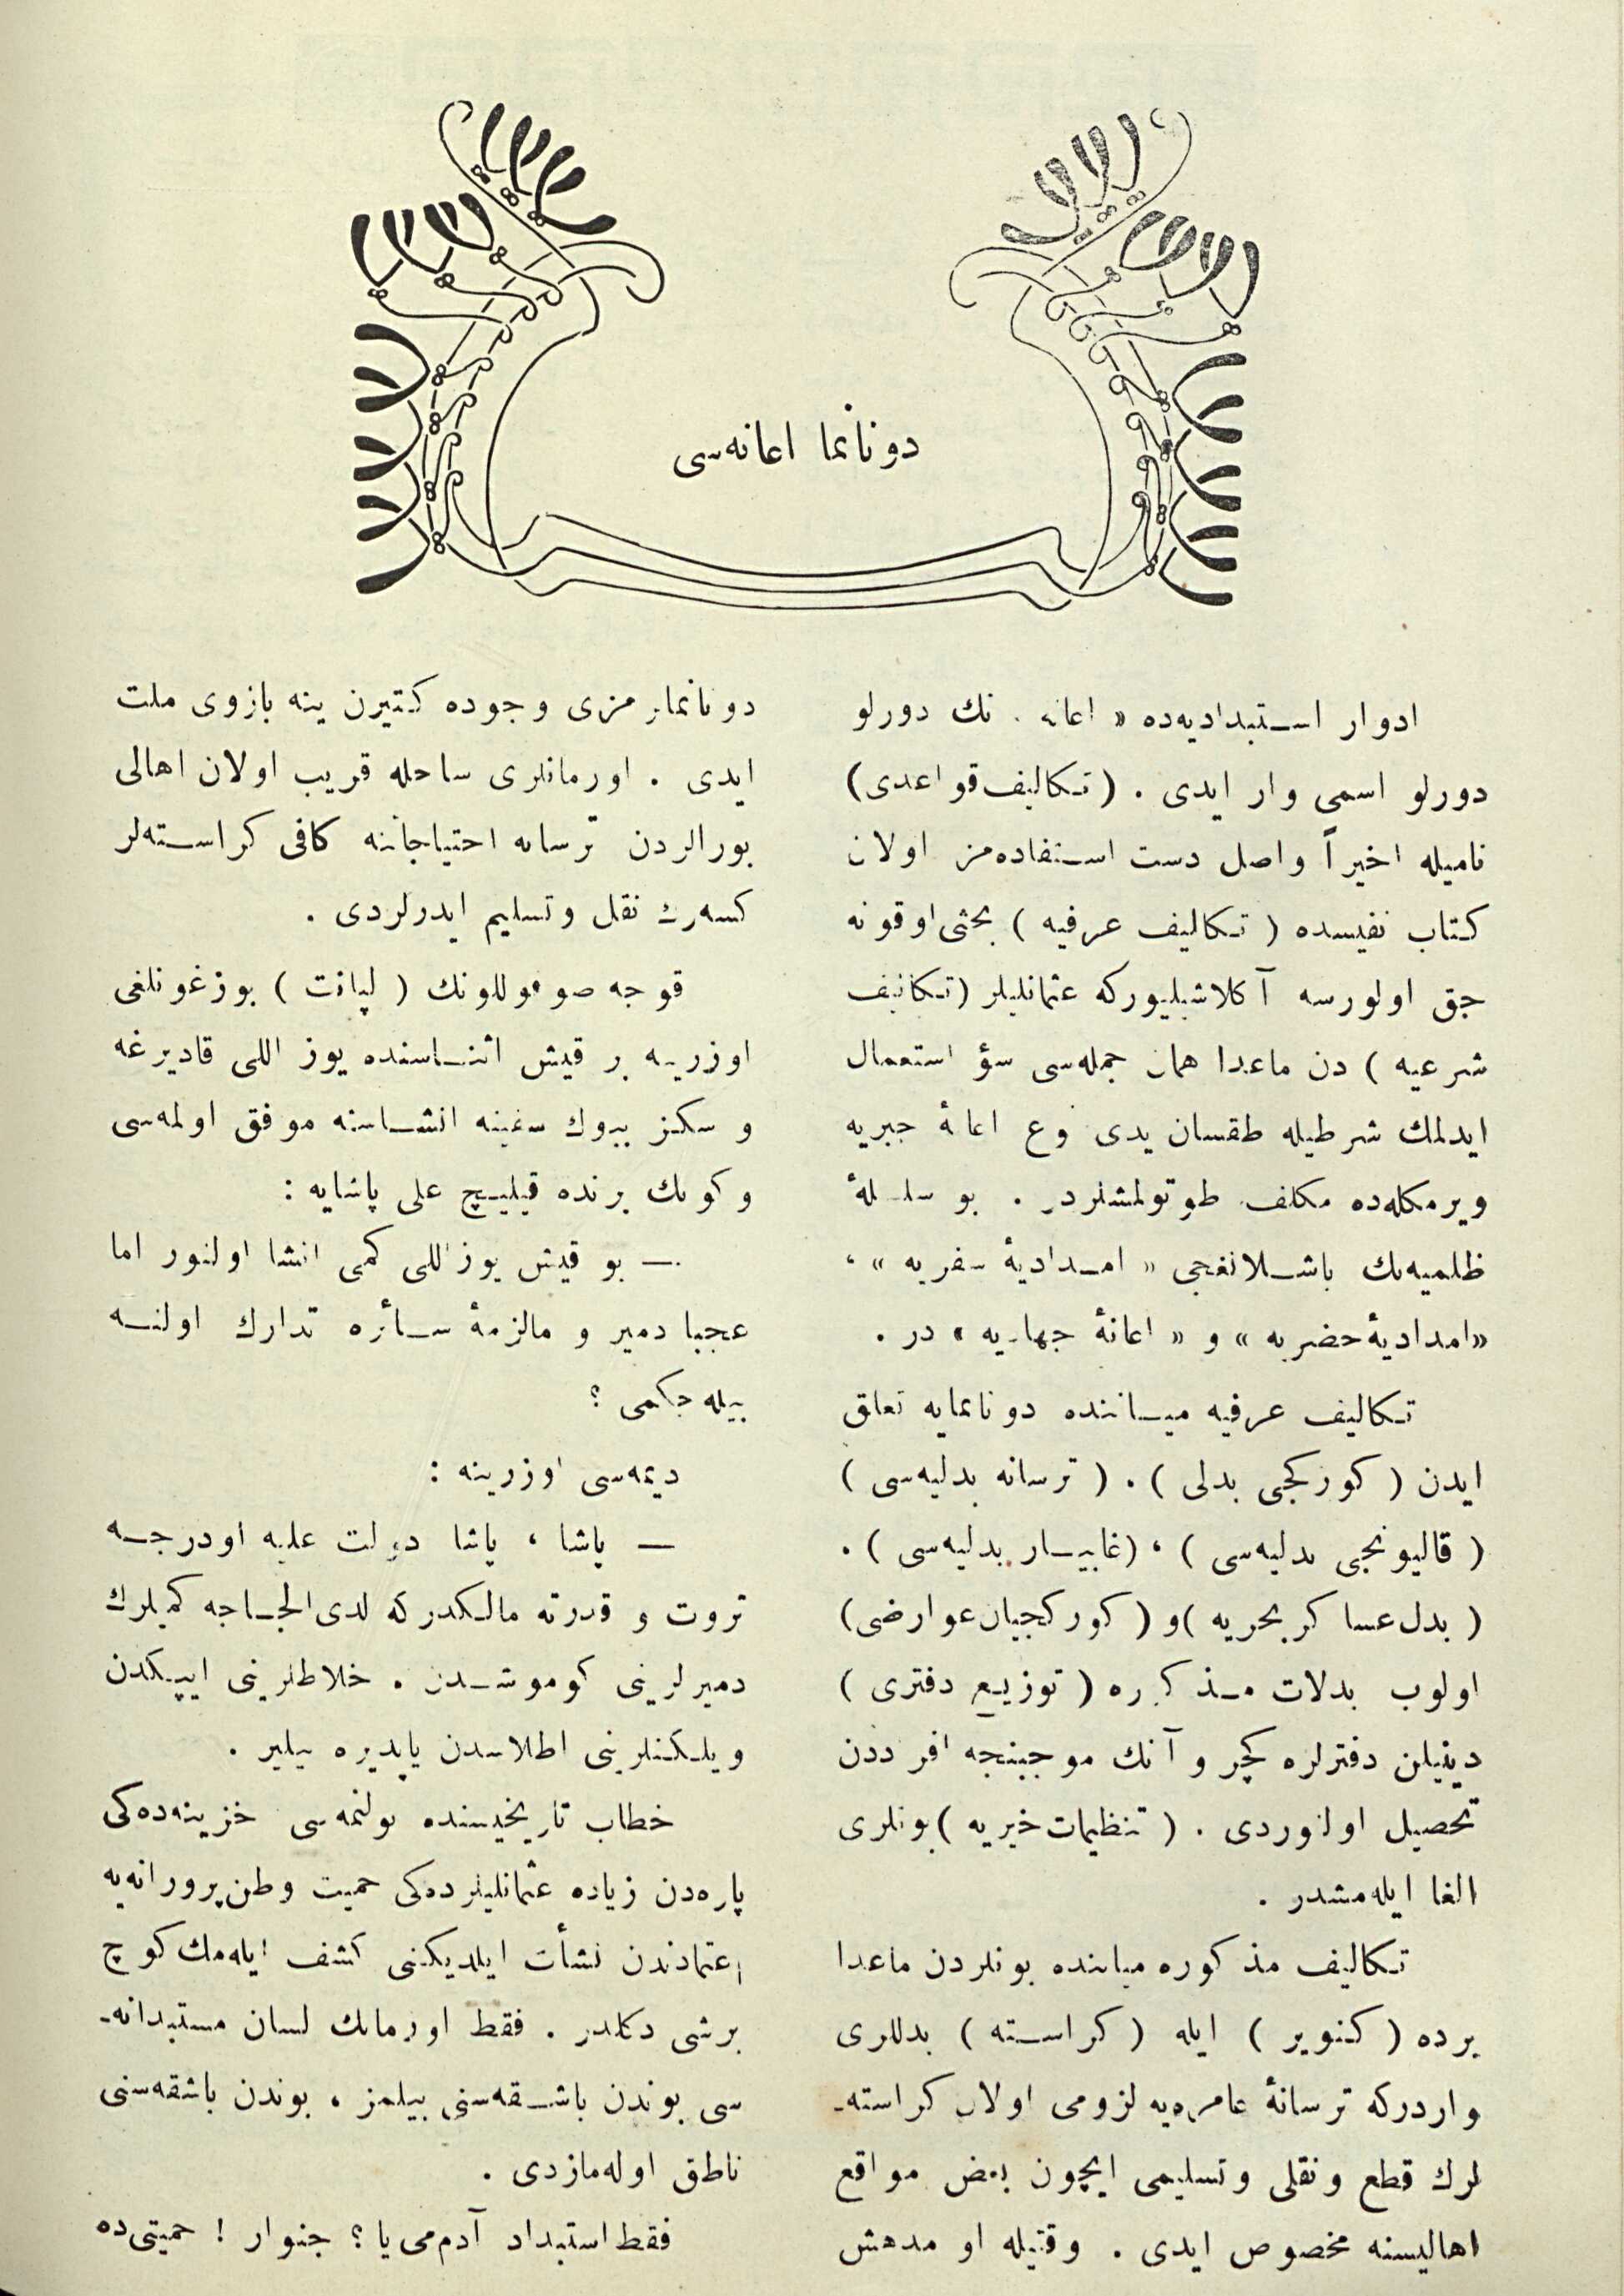 دونانما اعانه‌سی
ادوار استبدادیه‌ده « اعانه » نك دورلو
دورلو اسمی وار ایدی . (تكالیف قواعدی)
نامیله اخیراً واصل دست استفاده‌مز اولان
كتاب نفیسده ( تكالیف عرفیه ) بحثی اوقونه
جق اولورسه آ كلاشیلیوركه عثمانلیلر (تكالیف
شرعیه ) دن ماعدا همان جمله‌سی سؤ استعمال
ایدلمك شرطیله طقسان یدی نوع اعانهٔ جبریه
ویرمكله‌ده مكلف طوتولمشلردر . بو سلسلهٔ
ظلمیه‌نك باشلانغجی « امدادیهٔ سفریه » ،
«امدادیهٔ حضریه » و « اعانهٔ جهادیه » در .
تكالیف عرفیه میاننده دونانمایه تعلق
ایدن ( كوركجی بدلی ) . ( ترسانه بدلیه‌سی )
( قالیونجی بدلیه‌سی ) ، (غابیار بدلیه‌سی ) .
( بدل عساكر بحریه )و ( كوركجیان عوارضی)
اولوب بدلات مذكوره ( توزیع دفتری )
دینیلن دفترلره كچر و آنك موجبنجه افراددن
تحصیل اولنوردی . ( تنظیمات خیریه )بونلری
الغا ایله‌مشدر .
تكالیف مذكوره میاننده بونلردن ماعدا
برده ( كنویر ) ایله ( كراسته ) بدللری
واردركه ترسانهٔ عامره‌یه لزومی اولان كراسته‌ـ
لرك قطع ونقلی وتسلیمی ایچون بعض مواقع
اهالیسنه مخصوص ایدی . وقتیله او مدهش
دونانمالرمزی وجوده كتیرن ینه بازوی ملت
ایدی . اورمانلری ساحله قریب اولان اهالی
بورالردن ترسانه احتیاجاتنه كافی كراسته‌لر
كسه‌رك نقل وتسلیم ایدرلردی .
قوجه صوقوللونك ( لپانت ) بوزغونلغی
اوزرینه بر قیش اثناسنده یوز اللی قادیرغه
و سكز بیوك سفینه انشاسنه موفق اولمه‌سی
وكونك برنده قیلیچ علی پاشایه :
— بو قیش یوزاللی كمی انشا اولنور اما
عجبا دمیر و مالزمهٔ سائره تدارك اولنه
بیله جكمی ؟
دیمه‌سی اوزرینه :
— پاشا ، پاشا دولت علیه اودرجه
ثروت و قدرته مالكدركه لدی الحاجه كمیلرك
دمیرلرینی كوموشدن . خلاطلرینی ایپكدن
ویلكنلرینی اطلاسدن یاپدیره بیلیر .
خطاب تاریخیسنده بولنمه‌سی خزینه‌ده‌كی
پاره‌دن زیاده عثمانلیلرده‌كی حمیت وطن‌پرورانه‌یه
اعتمادندن نشأت ایلدیكنی كشف ایله‌مك كوچ
برشی دكلدر . فقط اورمانك لسان مستبدانه‌ـ
سی بوندن باشقه‌سنی بیلمز ، بوندن باشقه‌سنی
ناطق اوله‌مازدی .
فقط استبداد آدم‌می یا ؟ جنوار ! حمیتی‌ده